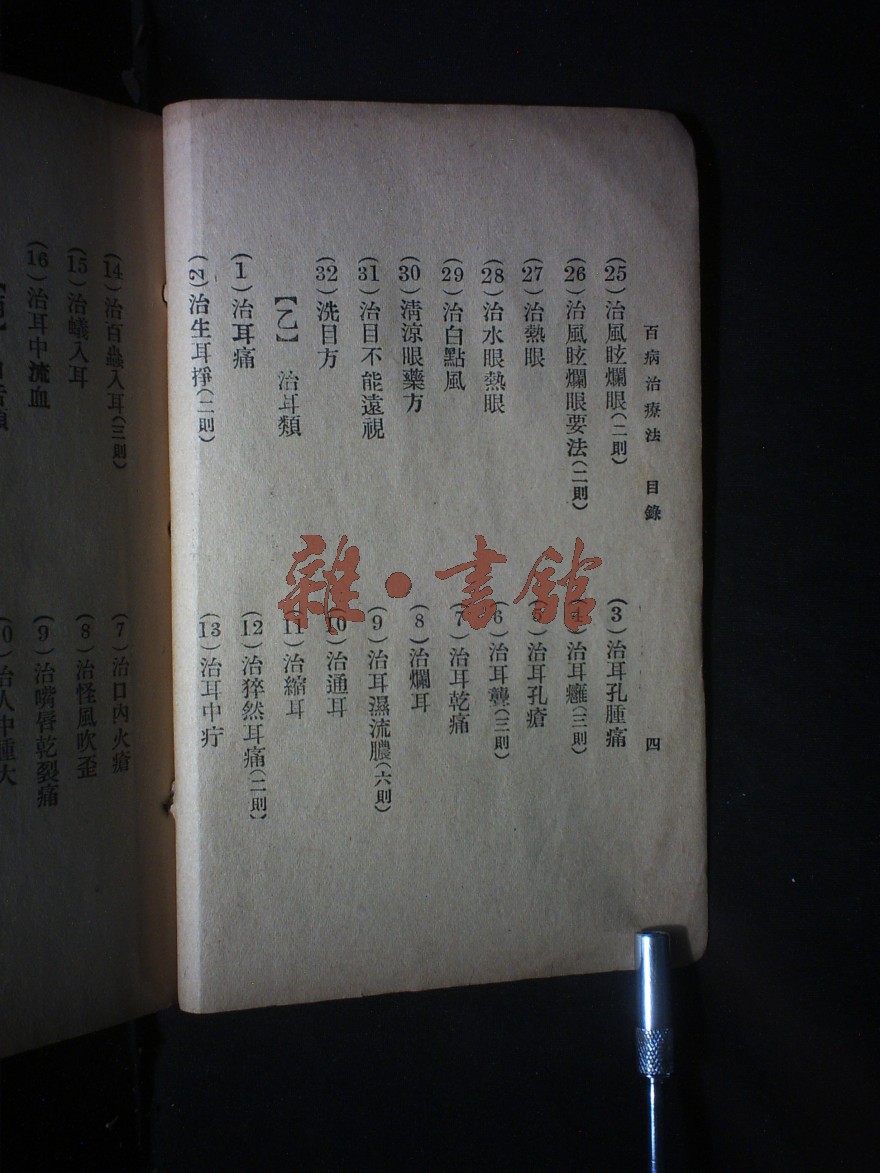 百病治療法　目錄　四
(25)治風眩爛眼(二則)
(26)治風眩爛眼要法(二則)
(27)治熱眼
(28)治水眼熱眼
(29)治白點風
(30)清涼眼藥方
(31)治目不能遠視
(32)洗目方
【乙】　治耳類
(1)治耳痛
(2)治生耳掙(二則)
(3)治耳孔腫痛
(4)治耳癰(三則)
(5)治耳孔瘡
(6)治耳聾(三則)
(7)治耳乾痛
(8)治爛耳
(9)治耳濕流膿(六則)
(10)治通耳
(11)治縮耳
(12)治猝然耳痛(二則)
(13)治耳中疔
(14)治百蟲入耳(三則)
(15)治蟻入耳
(16)治耳中流血
(7)治口內火瘡
(8)治怪風吹歪
(9)治嘴唇乾裂痛
治人中腫大
雜·書館